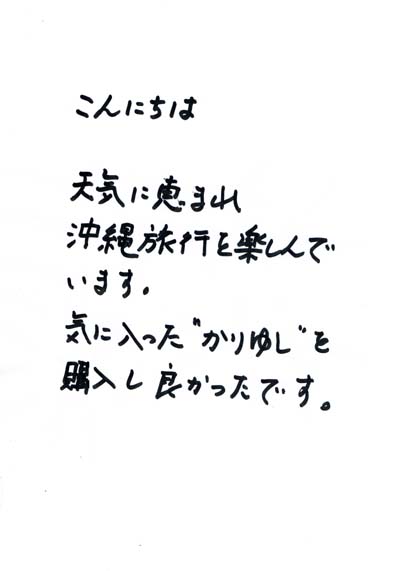 こんにちは
天気に恵まれ
沖縄旅行を楽しんで
います。
気に入った"かりゆし"を
購入し良かったです。